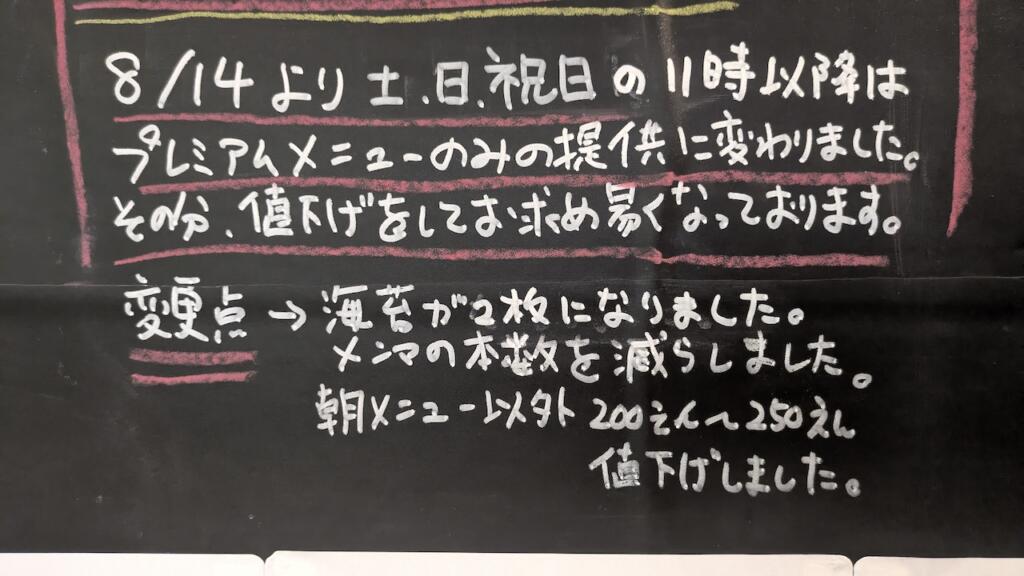 8/14より土、日、祝日の11時以降は
プレミアムメニューのみの提供に変わりました。
その分、値下げをしてお求め易くなっております。
変更点→海苔が2枚になりました。
メンマの本数を減らしました。
朝メニュー以外 200えん〜250えん
値下げしました。